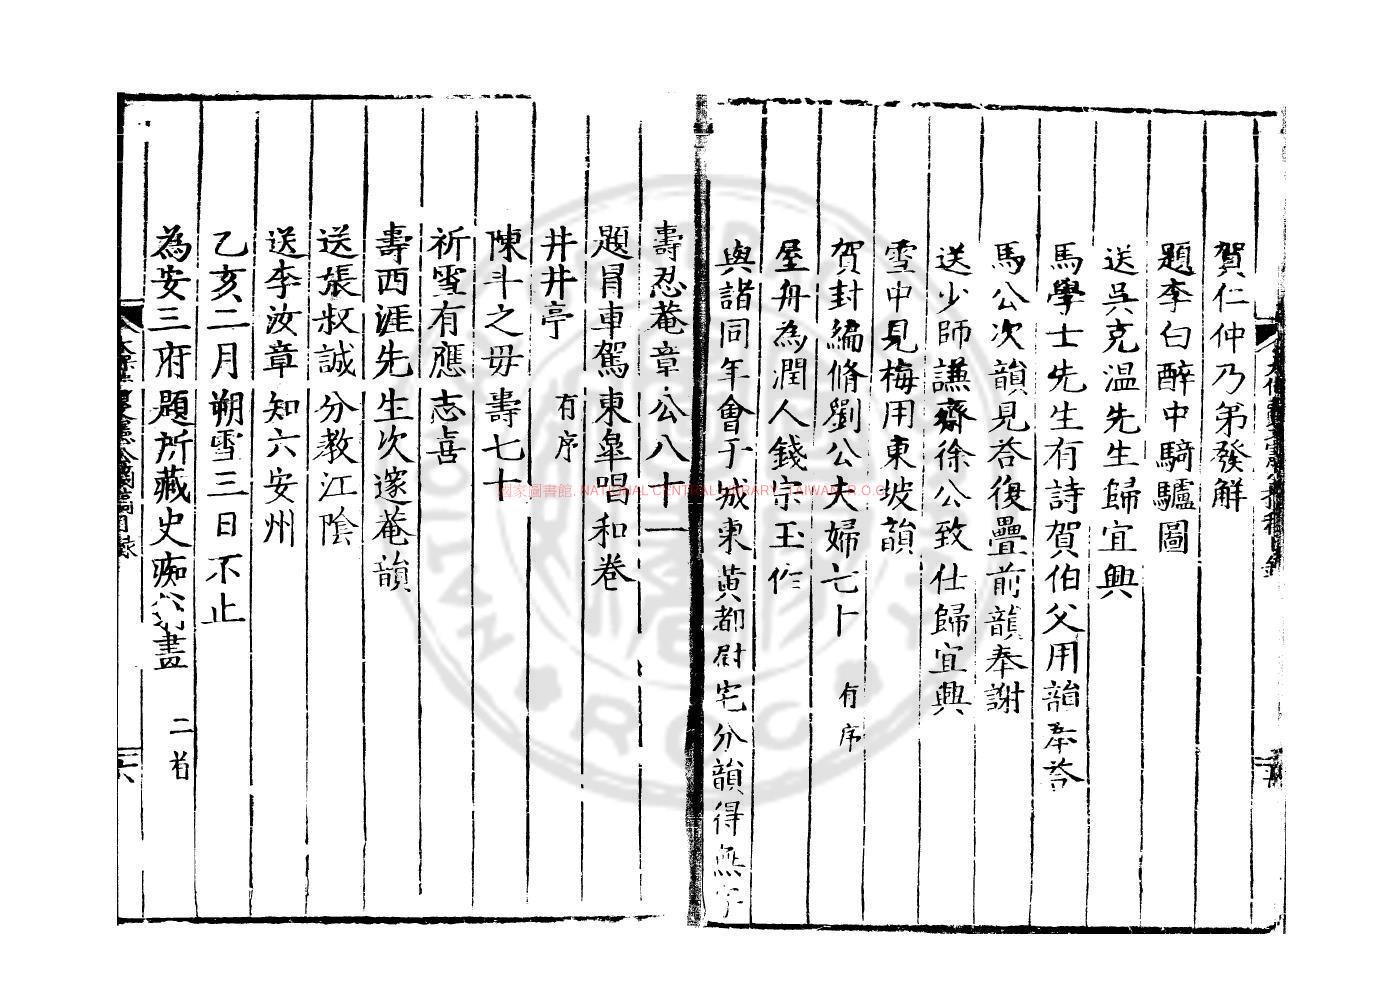 賀仁仲乃弟發解
題李白醉中騎驢圖
送吳克溫先生歸宜興
馬學士先生有詩賀伯父用韻奉荅
馬公次韻見荅復疊前韻奉謝
送少師謙齋徐公致仕歸宜興
雪中見梅用東坡韻
賀封編脩劉公夫婦七十 有序
屋舟為潤人錢宗玉作
與諸同年會于城東黃都尉宅分韻得無字
壽忍菴章公八十一
題冐車駕東皐唱和卷
井井亭 有序
陳斗之毋壽七十
祈雪有應志喜
壽西涯先生次邃菴韻
送張叔誠分教江陰
送李汝章知六安州
乙亥二月朔雪三日不止
為安三府題所藏史痴翁畫 二首
國家圖書館, NATIONAL CENTRAL LIBRARY, TAIWAN, R.O.C